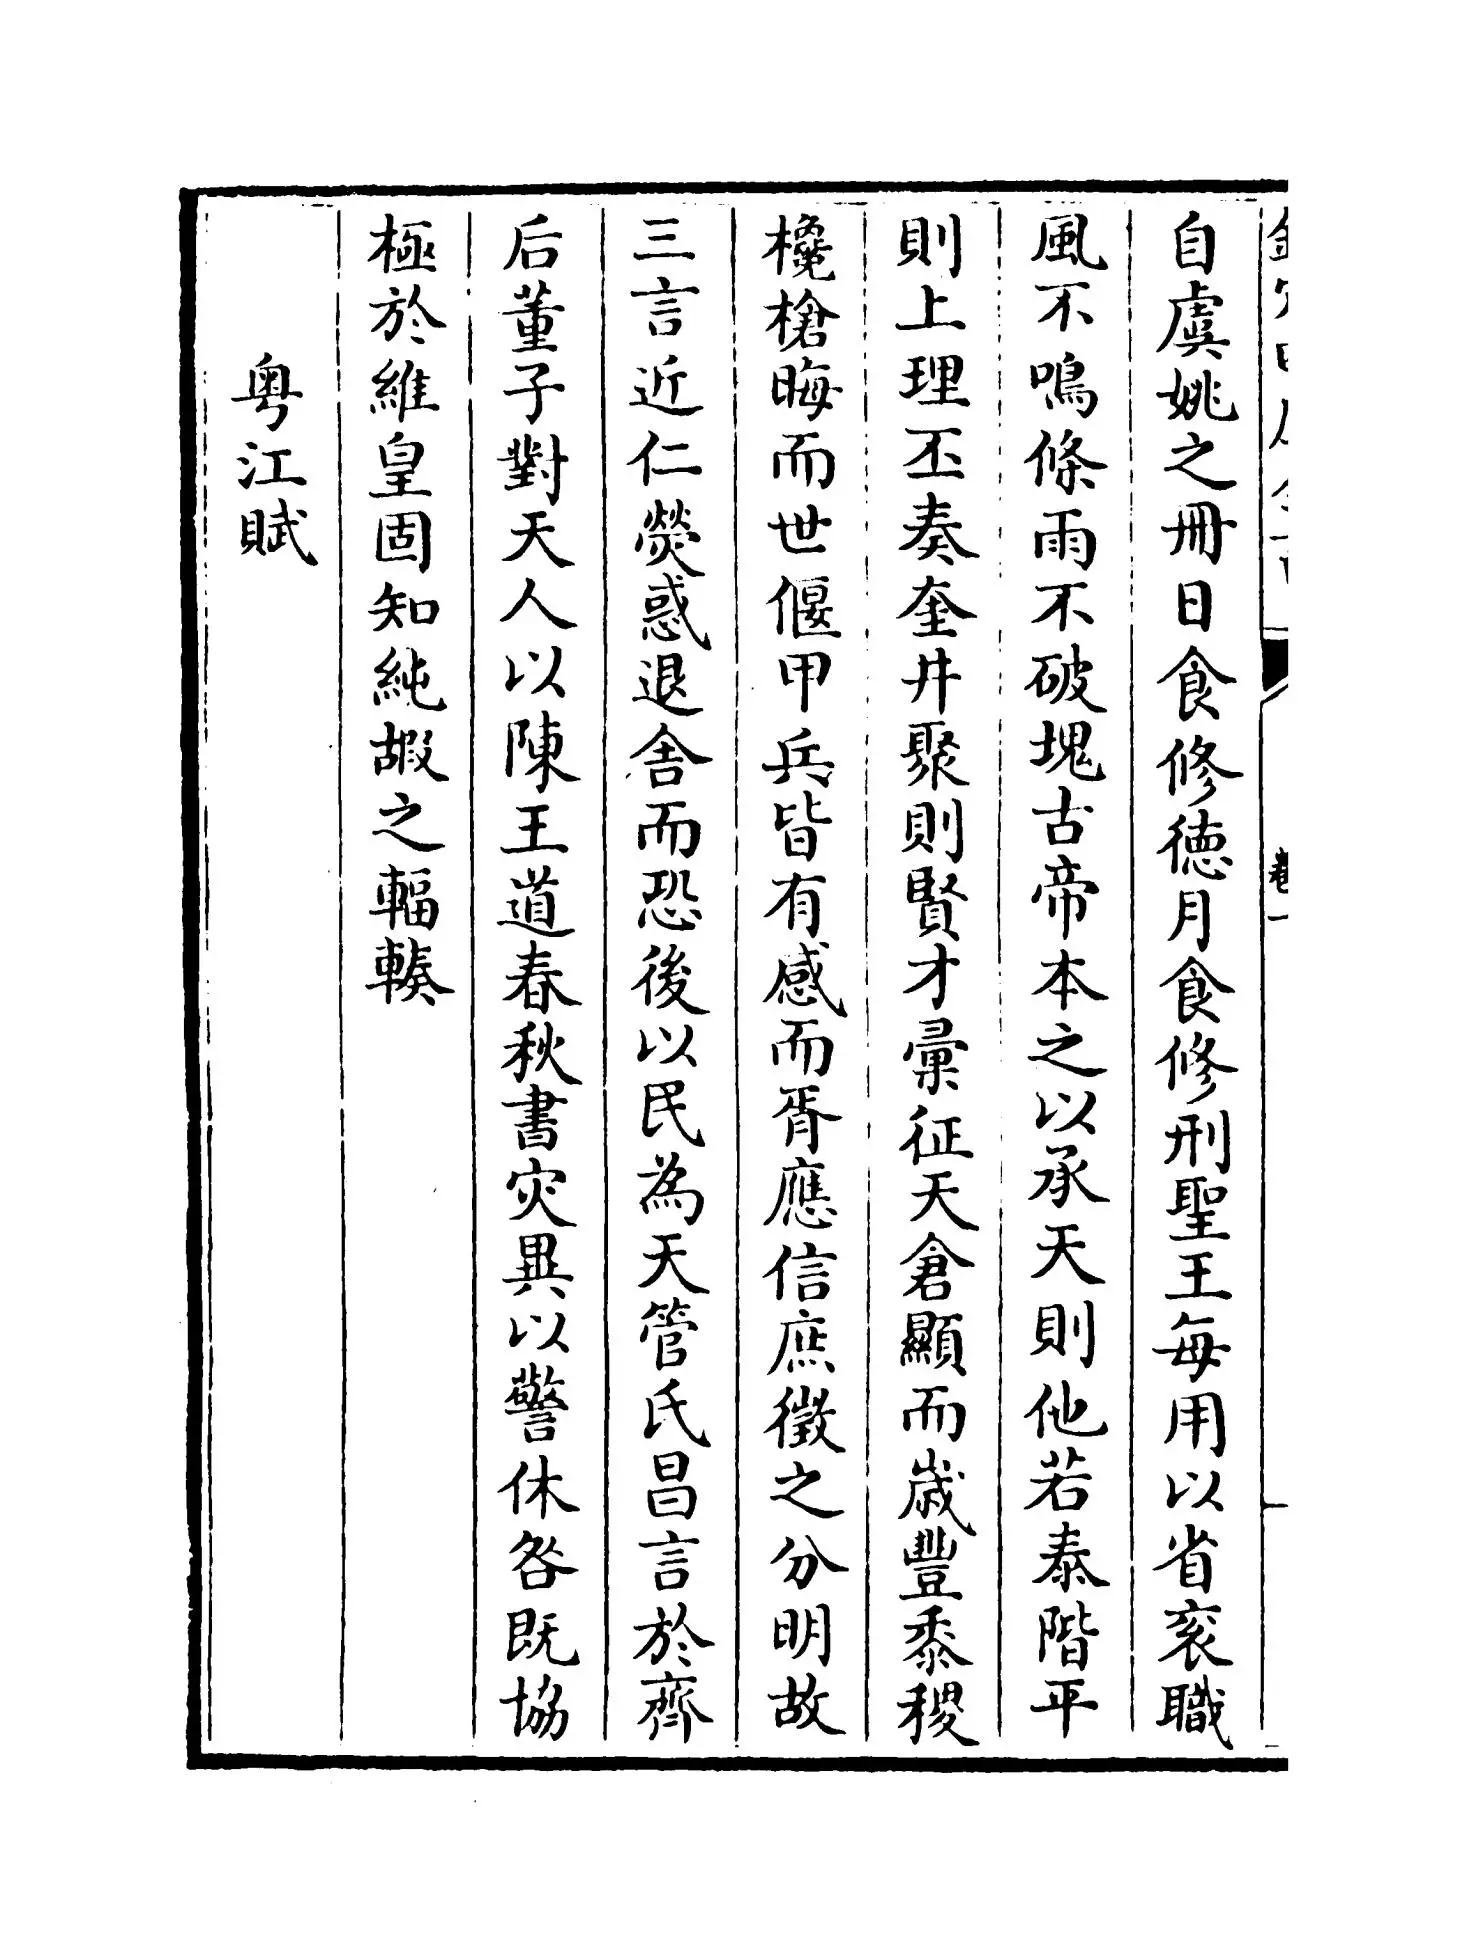 自虞姚之冊日食修德月食修刑聖王每用以省衮職
風不鳴條雨不破塊古帝本之以承天則他若泰階平
則上理丕奏奎井聚則賢才彚征天倉顯而嵗豐黍稷
欃槍晦而世偃甲兵皆有感而胥應信庶徵之分明故
三言近仁熒惑退舍而恐後以民為天管氏昌言於齊
后董子對天人以陳王道春秋書灾異以警休咎既協
極於維皇固知純嘏之輻輳
粤江賦